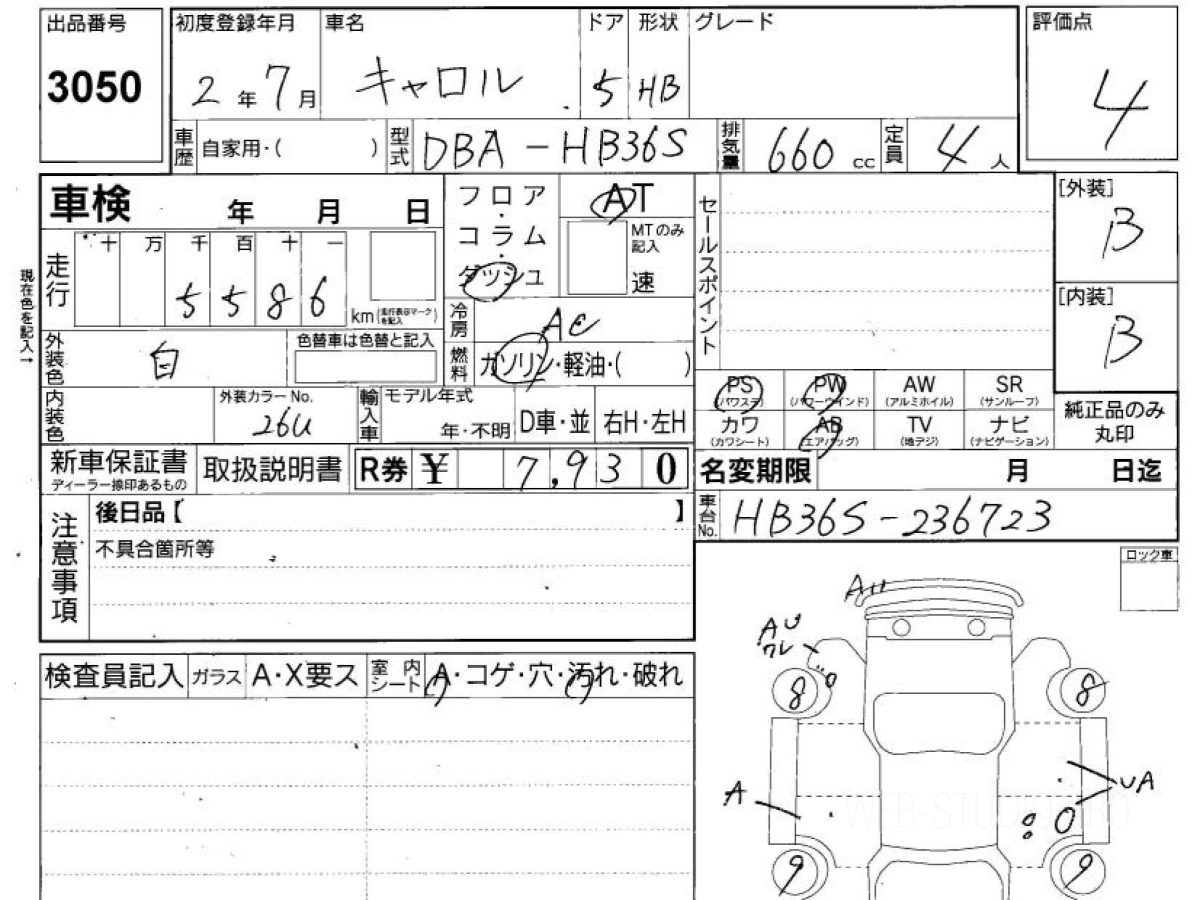 出品番号 初度登録年月 車名 ドア 形状 グレード 評価点
3050 2年 7月 キャロル 5 HB 4
車歴 自家用・( ) 型式 DBA-HB36S 排気量 660cc 定員 4人
車検 年 月 日
フロア・コラム・ダッシュ
AT
MTのみ記入
速
セールスポイント
[外装]
B
[内装]
B
現在色を記入→
走行 十 万 千 百 十 一
5 5 8 6 km (走行表示マークを記入)
冷房 AC
燃料 ガソリン・軽油・( )
外装色 白 色替車は色替と記入
内装色 外装カラーNo. 26U
輸入車 モデル年式 年・不明 D車・並 右H・左H
PS (パワステ) PW (パワーウインド) AW (アルミホイル) SR (サンルーフ)
カワ (カワシート) AB (エアバッグ) TV (地デジ) ナビ (ナビゲーション)
純正品のみ
丸印
新車保証書 ディーラー捺印あるもの 取扱説明書 R券 ¥ 7,930
名変期限 月 日迄
車台No. HB36S-236723
注意事項
後日品【 】
不具合箇所等
ロック車
検査員記入 ガラス A・X要ス 室内シート A・コゲ・穴・汚れ・破れ
A
AU
ワレ
8 8
A
UA
9 9
WEB-STUDIO.PRO